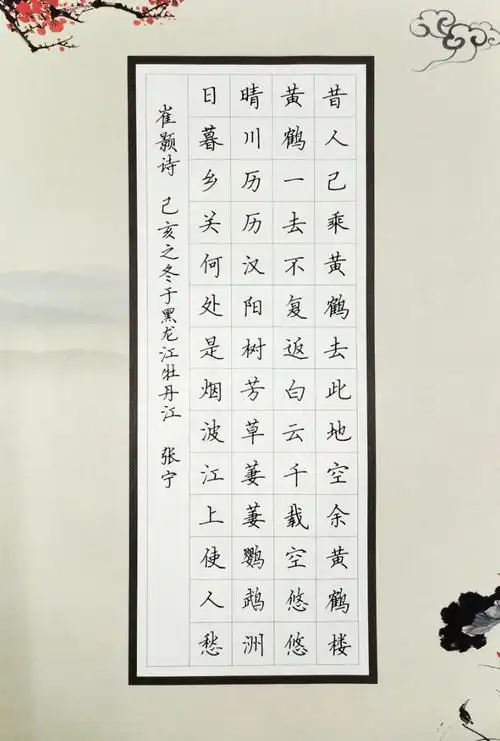 昔人己乘黄鹤去此地空余黄鹤楼
黄鹤一去不复返白云千载空悠悠
晴川历历汉阳树芳草萋萋鹦鹉洲
日暮乡关何处是烟波江上使人愁
崔颢诗 己亥之冬于黑龙江牡丹江 张宁